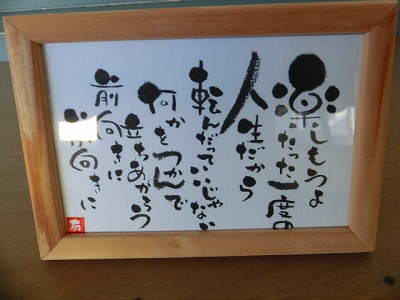 楽しもうよ
たった一度の
人生だから
転んだっていいじゃない
何かをつかんで
立ちあがろう
前向きに
前向きに